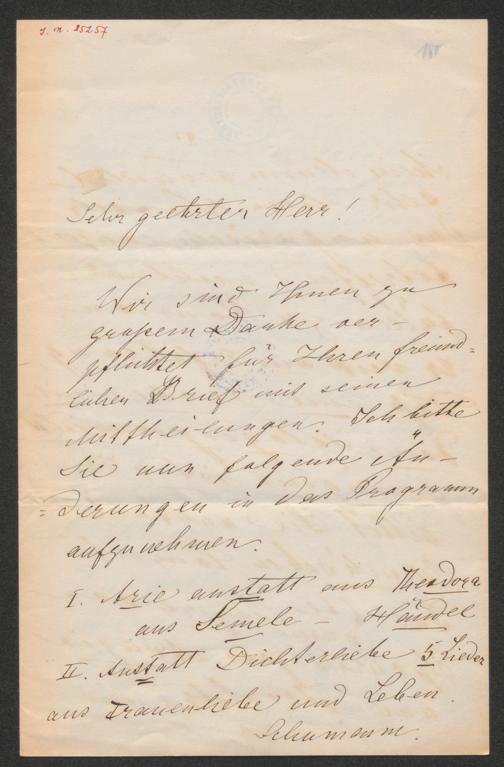 I. N. 25257
Sehr geehrter Herr!
Wir sind Ihnen zu
großem Danke ver-
pflichtet für Ihren freund=
lichen Brief mit seinen
Mittheilungen. Ich bitte
Sie nun folgende Än-
=derungen in das Programm
aufzunehmen.
I. Arie anstatt aus Theodora
aus Semele - Händel
II. Anstatt Dichterliebe 5 Lieder
aus Frauenliebe und Leben.
Schumann.